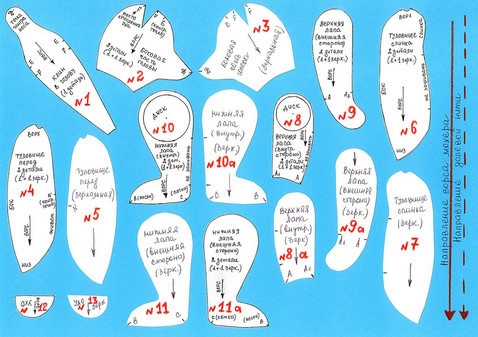 КЛИН
В ГОЛОВУ
(1 деталь)
N1
БОКОВАЯ
ЧАСТЬ ГОЛОВЫ
2 детали
(1+1 зерк.)
N2
N3
БОКОВАЯ
(зеркальная)
ДИСК
N10
НИЖНЯЯ
ЛАПА
(внутр.)
2 дет.
(1+1 зерк.)
НИЖНЯЯ
ЛАПА
(внутр.)
(зерк.)
N10а
ДИСК
N8
ВЕРХНЯЯ
ЛАПА
(внутр.
сторона)
2 детали
(1+1 зерк.)
ВЕРХНЯЯ
ЛАПА
(внешняя
сторона)
2 детали
(1+1 зерк.)
N9
ВЕРХ
ТУЛОВИЩЕ
СПИНКА
2 детали
(1+1 зерк.)
БОК
ВОРС
N6
НИЗ
ВЕРХ
ТУЛОВИЩЕ
ПЕРЕД
2 детали
(1+1 зерк.)
N4
БОК
ВОРС
НИЗ
ТУЛОВИЩЕ
ПЕРЕД
(зеркальная)
N5
НИЖНЯЯ
ЛАПА
(внешняя
сторона)
(зерк.)
N11
НИЖНЯЯ
ЛАПА
(внешняя
сторона)
2 детали
(1+1 зерк.)
ВОРС
N11а
ВЕРХНЯЯ
ЛАПА
(внутр.)
(зерк.)
N8а
ВЕРХНЯЯ
ЛАПА
(внешняя
сторона)
(зерк.)
N9а
ТУЛОВИЩЕ
СПИНКА
(зерк.)
N7
N12
УХО
N13
зерк.
Направление ворса мохера
Направление долевой нити